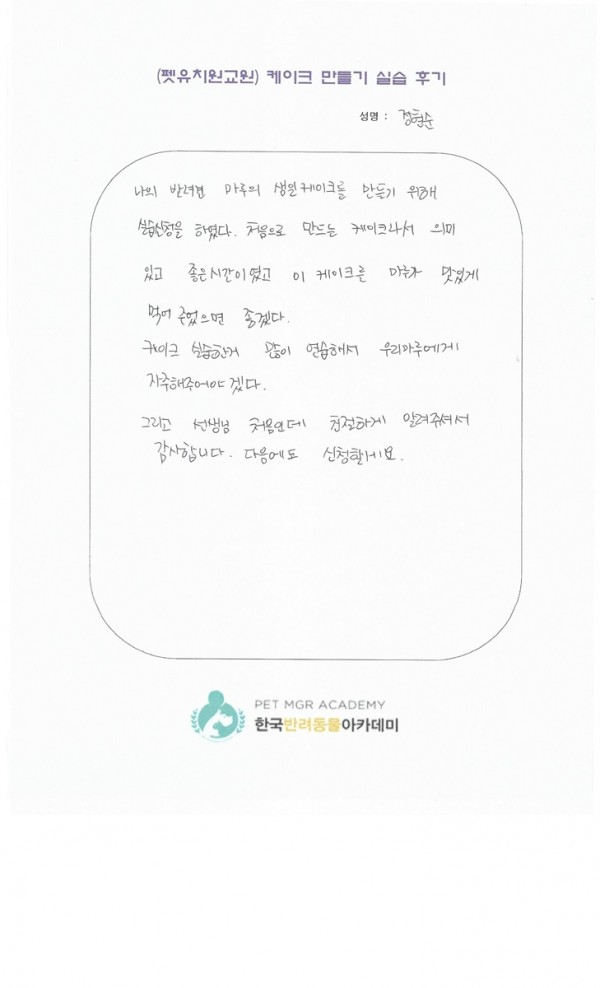 (펫유치원교원) 케이크 만들기 실습 후기
성명 : 정현순
나의 반려견 마루의 생일케이크를 만들기 위해
실습신청을 하였다. 처음으로 만드는 케이크라서 의미
있고 좋은시간이였고 이 케이크를 마루가 맛있게
먹어 주었으면 좋겠다.
케이크 실습한거 많이 연습해서 우리마루에게
자주해주어야 겠다.
그리고 선생님 처음인데 친절하게 알려주셔서
감사합니다. 다음에도 신청할게요.
PET MGR ACADEMY
한국반려동물아카데미